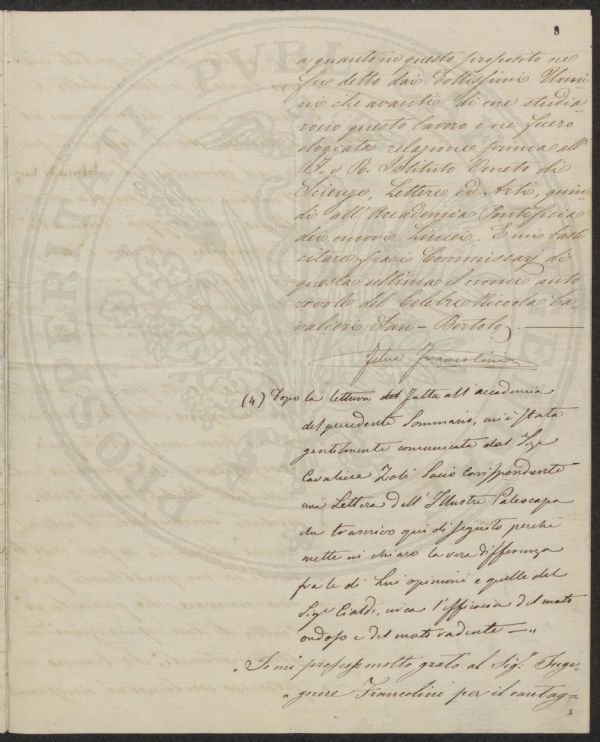 8
a quanto in questo proposito ne
fu detto dai Dottissimi Uomi=
ni che avanti di me studia=
rono questo lavoro e ne fecero
elogiata relazione prima all'
I. e R. Istituto Veneto di
Scienze, Lettere ed Arti, quin=
di all'Accademia Pontificia
dei nuovi Lincei. E mi basti
citare fra i Commissarj di
questa ultima il nome auto
revole del Celebre Niccola Ca
valieri San-Bertolo.
Felice Francolini
(4) Dopo la lettura del fatta all'accademia
del precedente Sommario, mi è stata
gentilmente comunicata dal Sigr
Cavaliere Zobi Socio Corrispondente
una Lettera dell'Illustre Paleocapa
che trascrivo qui di seguito perchè
mette in chiaro la vera differenza
fra le di Lui opinioni e quelle del
Sigr Cialdi, circa l'efficacia del moto
ondoso e del moto radente —"
"Io mi professo molto grato al Sigr Inge=
"gnere Francolini per il vantag=
PROSPERITATI PUBLICAE